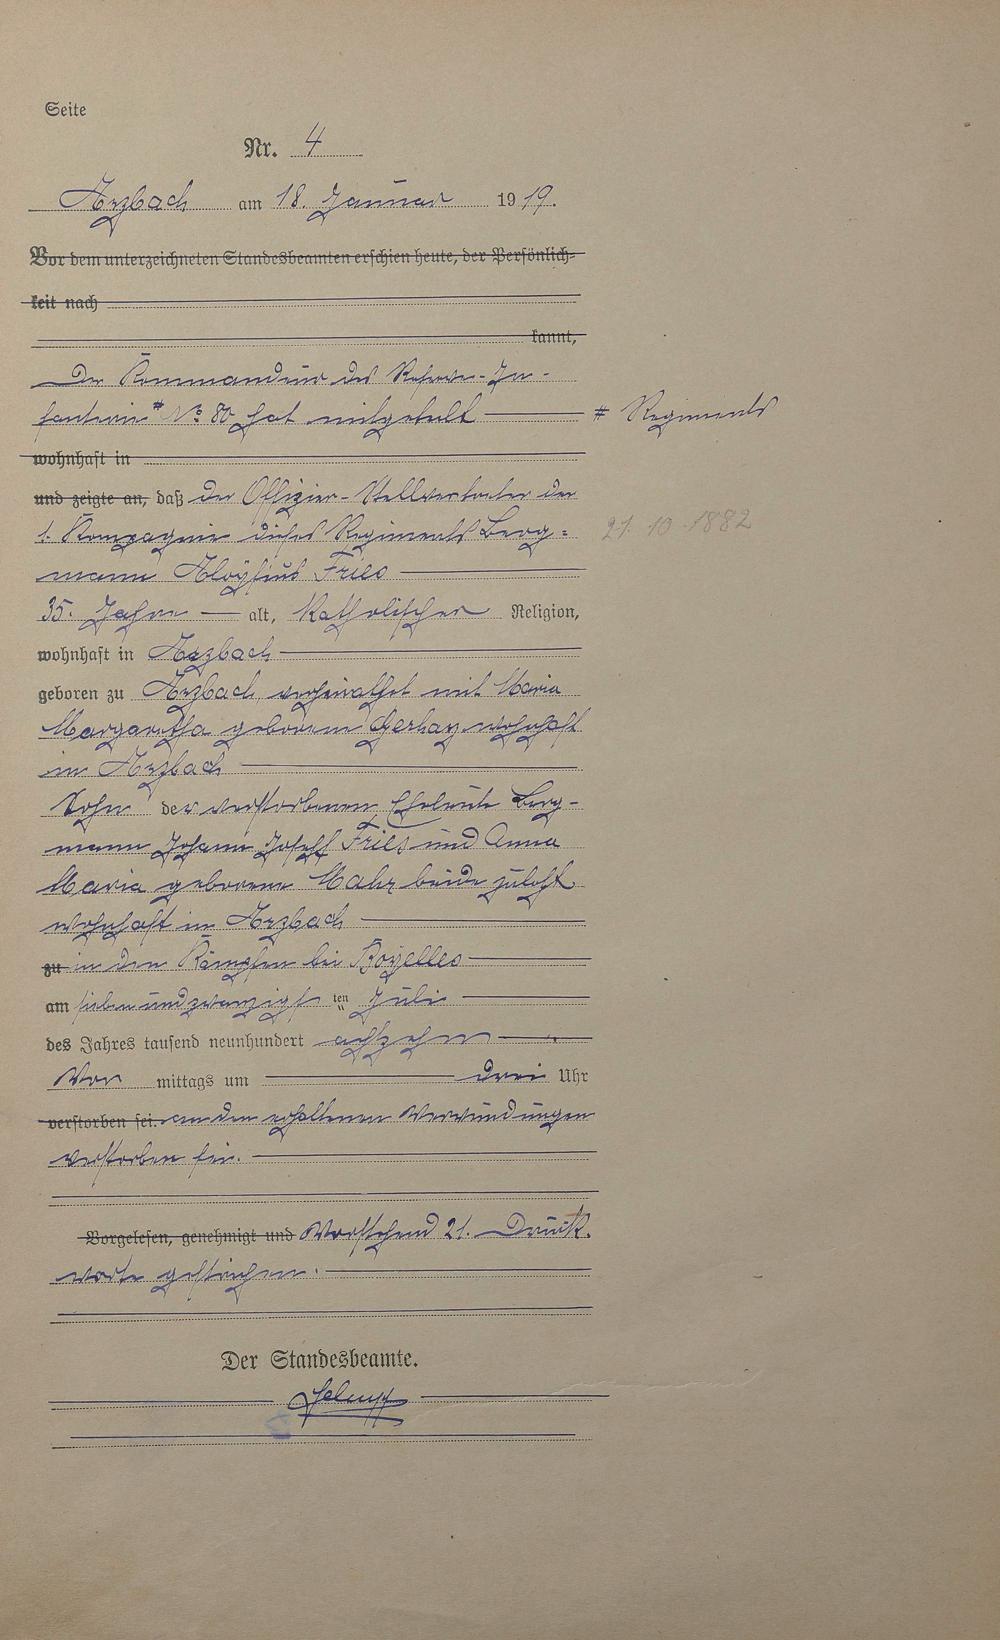 Seite
Nr. 4
Arzbach am 18. Januar 1919.
Vor dem unterzeichneten Standesbeamten erschien heute, der Persönlich-
keit nach
kannt,
Der Kommandeur des Reserve-In-
fanterie # No 80 hat mitgeteilt # Regiments
wohnhaft in
und zeigte an, daß der Offizier-Stellvertreter der
1. Kompagnie dieses Regiments Berg- 21.10.1882
mann Aloysius Fries
35. Jahre alt, katholischer Religion,
wohnhaft in Arzbach
geboren zu Arzbach, verheirathet mit Maria
Margaretha geborene wohnhaft
in Arzbach
Sohn der verstorbenen Eheleute Berg-
mann Johann Joseph Fries und Anna
Maria geborene beide zuletzt
wohnhaft in Arzbach
zu in den Kämpfen bei Boyelles
am siebenundzwanzigsten Juli
des Jahres tausend neunhundert achtzehn
Vor mittags um drei Uhr
verstorben sei. an den erhaltenen Verwundungen
verstorben sei.
Vorgelesen, genehmigt und Vorstehend 21. Druck-
worte gestrichen.
Der Standesbeamte.